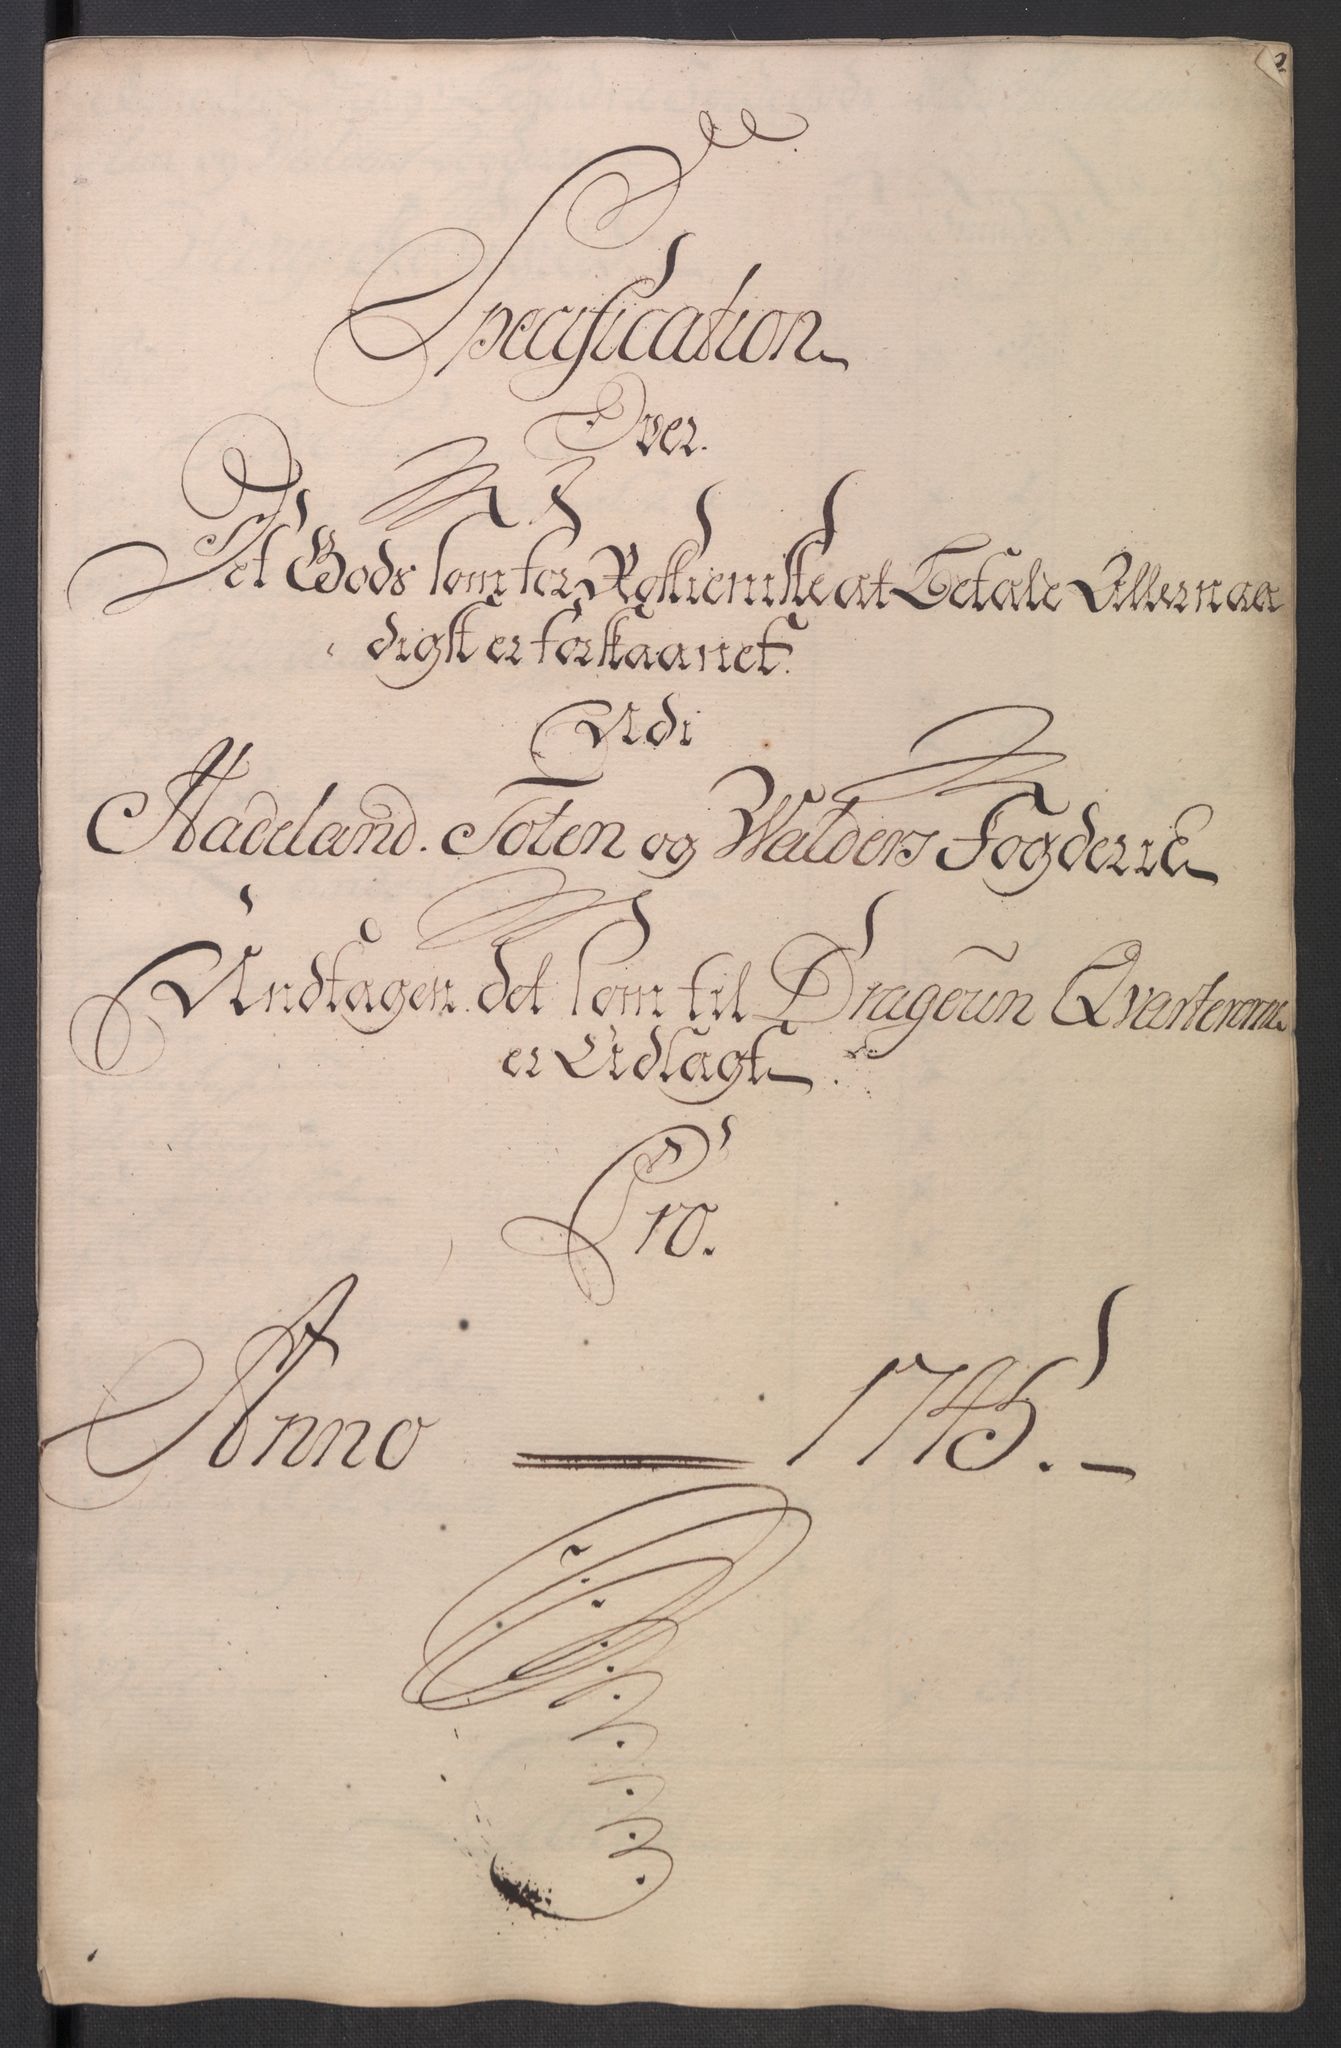 2
Specification
Over.
Det Gods som for Rosttieniste at Betale Allernaa
digst er forskaanet.
Udi
Hadeland. Toten og Walders Fogderie
Undtagen det som til Dragoun Qvartererne
er Udlagt
Pro.
Anno 1745.